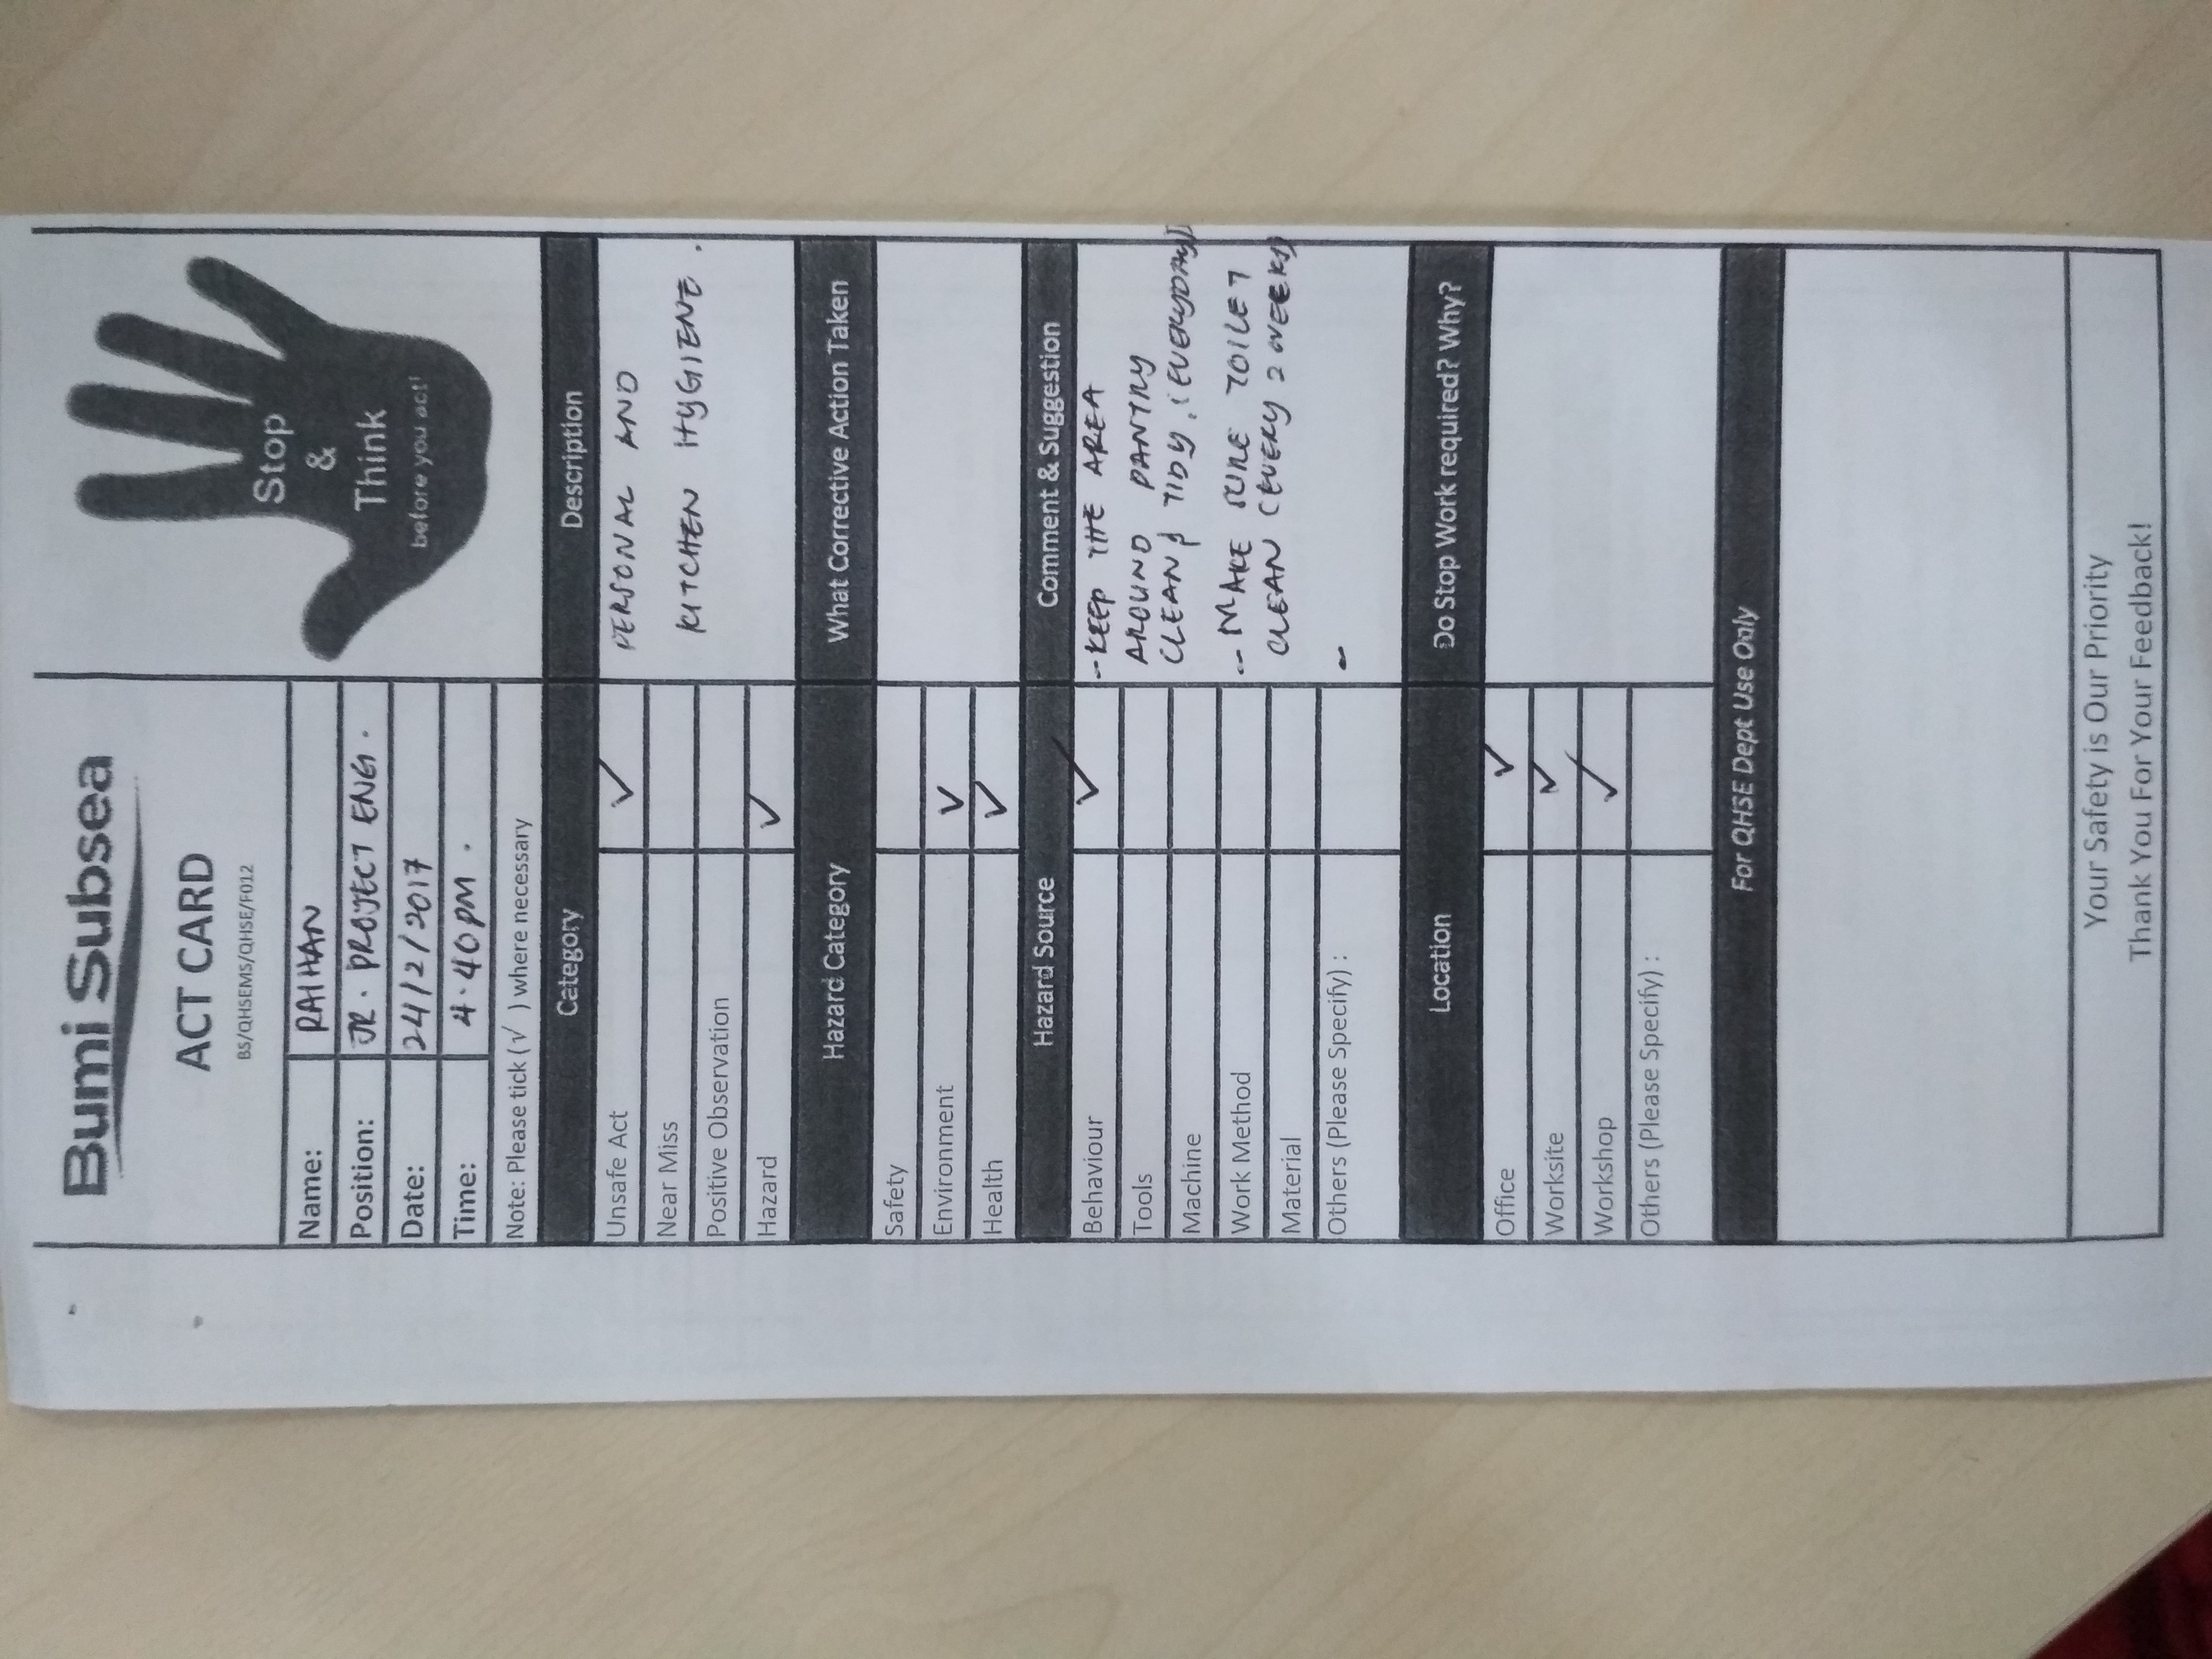 Bumi Subsea
ACT CARD
BS/QHSEMS/QHSE/F012
Stop
&
Think
before you act!
Name: RAIHAN
Position: JR. PROJECT ENG.
Date: 24/2/2017
Time: 4.40PM.
Note: Please tick (√ ) where necessary
Category Description
Unsafe Act ✓ PERSONAL AND
Near Miss
Positive Observation KITCHEN HYGIENE.
Hazard ✓
Hazard Category What Corrective Action Taken
Safety
Environment ✓
Health ✓
Hazard Source Comment & Suggestion
Behaviour ✓ - KEEP THE AREA
Tools AROUND PANTRY
Machine CLEAN & TIDY. (EVERYDAY)
Work Method - MAKE SURE TOILET
Material CLEAN (EVERY 2 WEEKS)
Others (Please Specify) : -
Location Do Stop Work required? Why?
Office ✓
Worksite ✓
Workshop ✓
Others (Please Specify) :
For QHSE Dept Use Only
Your Safety is Our Priority
Thank You For Your Feedback!